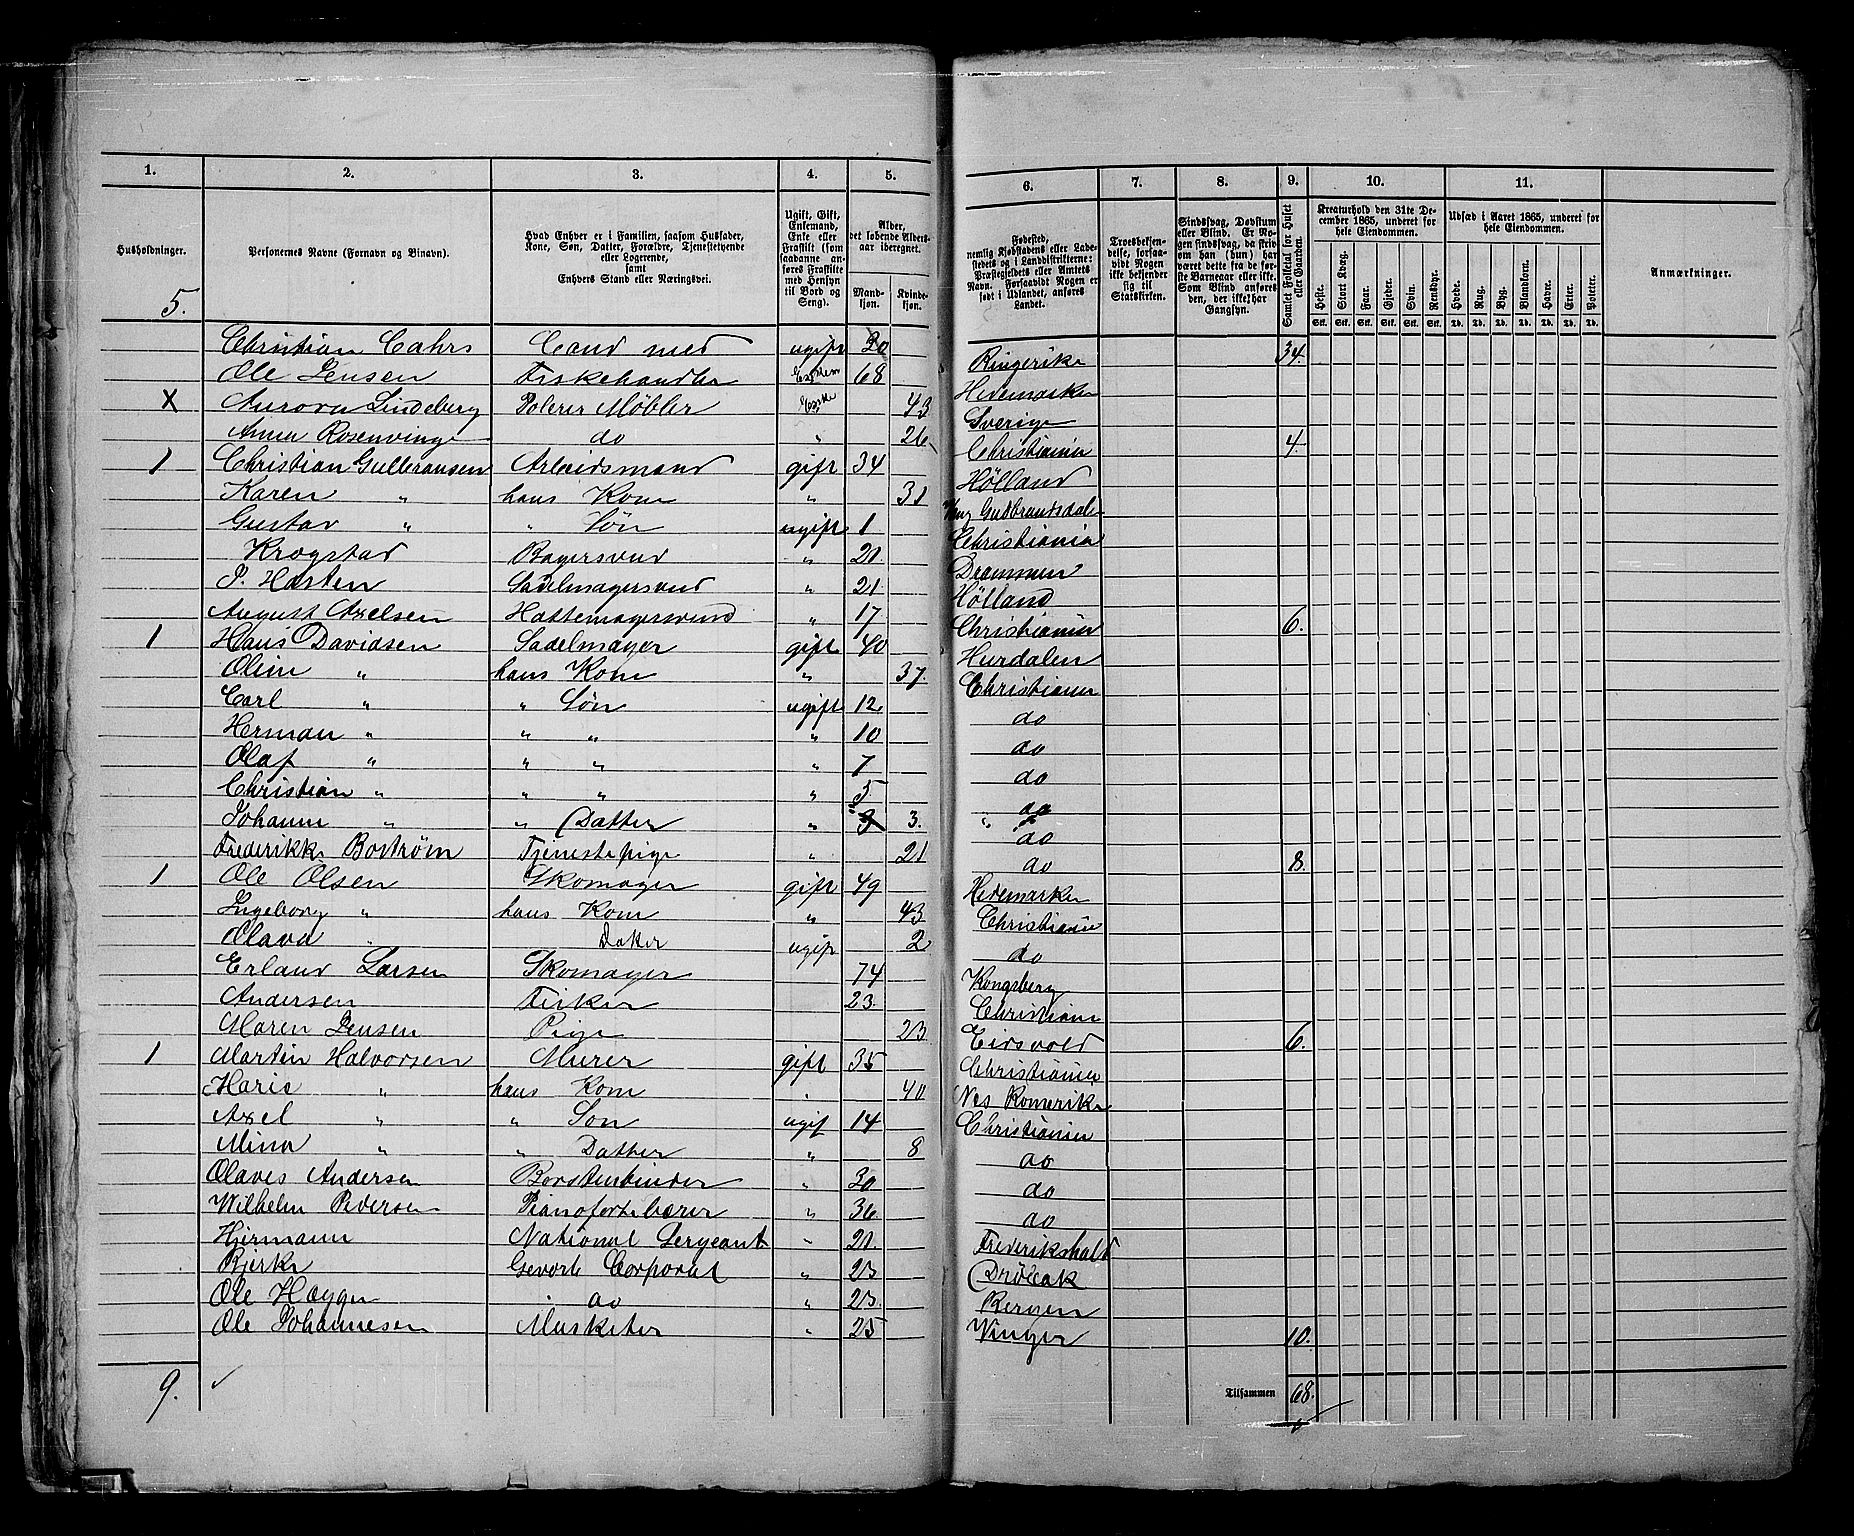 1. 2. 3. 4. 5. 6. 7. 8. 9. 10. 11.
Husholdninger.
Personernes Navne (Fornavn og Binavn).
Hvad Enhver er i Familien, saasom Husfader, Kone, Søn, Datter, Forældre, Tjenestetyende eller Logerende, samt Enhvers Stand eller Næringsvei.
Ugift, Gift, Enkemand, Enke eller Fraskilt (som saadanne anføres Fraskilte med Hensyn til Bord og Seng).
Alder, det løbende Aldersaar iberegnet.
Mandkjøn. Kvindekjøn.
Fødested, nemlig Kjøbstadens eller Ladestedets og i Landdistrikterne: Præstegjeldets eller Amtets Navn. Forsaavidt Nogen er født i Udlandet, anføres Landet.
Troesbekjendelse, forsaavidt Nogen ikke bekjender sig til Statskirken.
Sindssvag, Døvstum eller Blind. Er Nogen sindssvag, da skrives om han (hun) har været dette fra de første Barneaar eller ikke. Som Blind ansøres den, der ikke har Gangsyn.
Samlet Folketal for Huset eller Gaarden.
Kreaturhold den 31te December 1865, underet for hele Eiendommen.
Heste. Stort Kvæg. Faar. Gjeder. Svin. Rensdyr.
Stk. Stk. Stk. Stk. Stk. Stk.
Udsæd i Aaret 1865, underet for hele Eiendommen.
Hvede. Rug. Byg. Blandkorn. Havre. Erter. Poteter.
Td. Td. Td. Td. Td. Td. Td.
Anmærkninger.
5.
Christian Cahrs Cand med ugift 30 Ringerike 34.
Ole Jensen Fiskehandler 68 Hedemarken
X Aurora Lindeberg Polerer Møbler 43 Sverige
Anna Rosenvinge do " 26 Christiania 4.
1 Christian Gulbransen Arbeidsmand gift 34 Hølland
Karen " hans Kone " 31 Gudbrandsdalen
Gustav " " Søn ugift 1 Christiania
Krogstad Bagersvend " 20. Drammen
P. Hasten Sadelmagersvend " 21 Hølland
August Axelsen Hattemagersvend " 17. Christiania 6.
1 Hans Davidsen Sadelmager gift 40 Hurdalen
Oline " hans Kone " 37. Christiania
Carl " " Søn ugift 12 do
Herman " " " " 10 do
Olaf " " " " 7 do
Christian " " " " 5 " do
Johanne " " Datter " 3 3. do
Frederikke Bostrøm Tjenestepige " 21 do 8.
1 Ole Olsen Skomager gift 49 Hedemarken
Ingeborg " hans Kone " 43 Christiania
Olava " Datter ugift 2 do
Erland Larsen Skomager 74 Kongsberg
Andersen Fisker 23. Christiania
Maren Jensen Pige 23 Eidsvold 6.
1 Martin Halvorsen Murer gift 35 Christiania
Marie " hans Kone " 40 Nes Romerike
Axel " " Søn ugif 14 Christiania
Mina " " Datter " 8 do
Olaves Andersen Børstenbinder " 30 do
Wilhelm Pedersen Pianofortebærer " 36 do
Hjermann National Sergeant " 21. Frederikshald
Bjerke Gevorb Corporal " 23 Drøbak
Ole Haugen " do " 23. Bergen
Ole Johannesen Musketer " 25 Vinger 10.
9. ✓ Tilsammen 68.